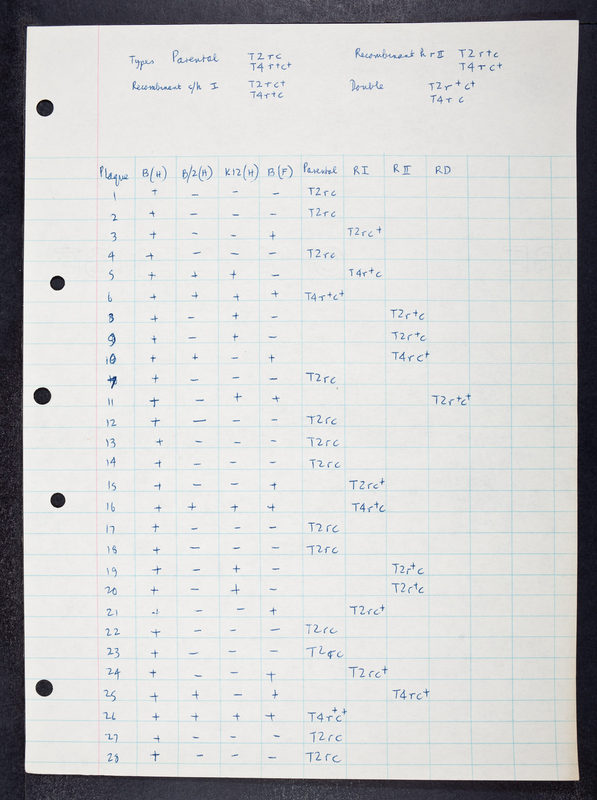 Types Parental T2rc Recombinant h r II T2r+c
T4r+c+ T4rc+
Recombinant c/h I T2rc+ Double T2r+c+
T4r+c T4rc
Plaque B(H) B/2(H) K12(H) B(F) Parental RI RII RD
1 + − − − T2rc
2 + − − − T2rc
3 + − − + T2rc+
4 + − − − T2rc
5 + + + − T4r+c
6 + + + + T4r+c+
8 + − + − T2r+c
9 + − + − T2r+c
10 + + − + T4rc+
7 + − − − T2rc
11 + − + + T2r+c+
12 + − − − T2rc
13 + − − − T2rc
14 + − − − T2rc
15 + − − + T2rc+
16 + + + + T4r+c
17 + − − − T2rc
18 + − − − T2rc
19 + − + − T2r+c
20 + − + − T2r+c
21 + − − + T2rc+
22 + − − − T2rc
23 + − − − T2rc
24 + − − + T2rc+
25 + + − + T4rc+
26 + + + + T4r+c+
27 + − − − T2rc
28 + − − − T2rc